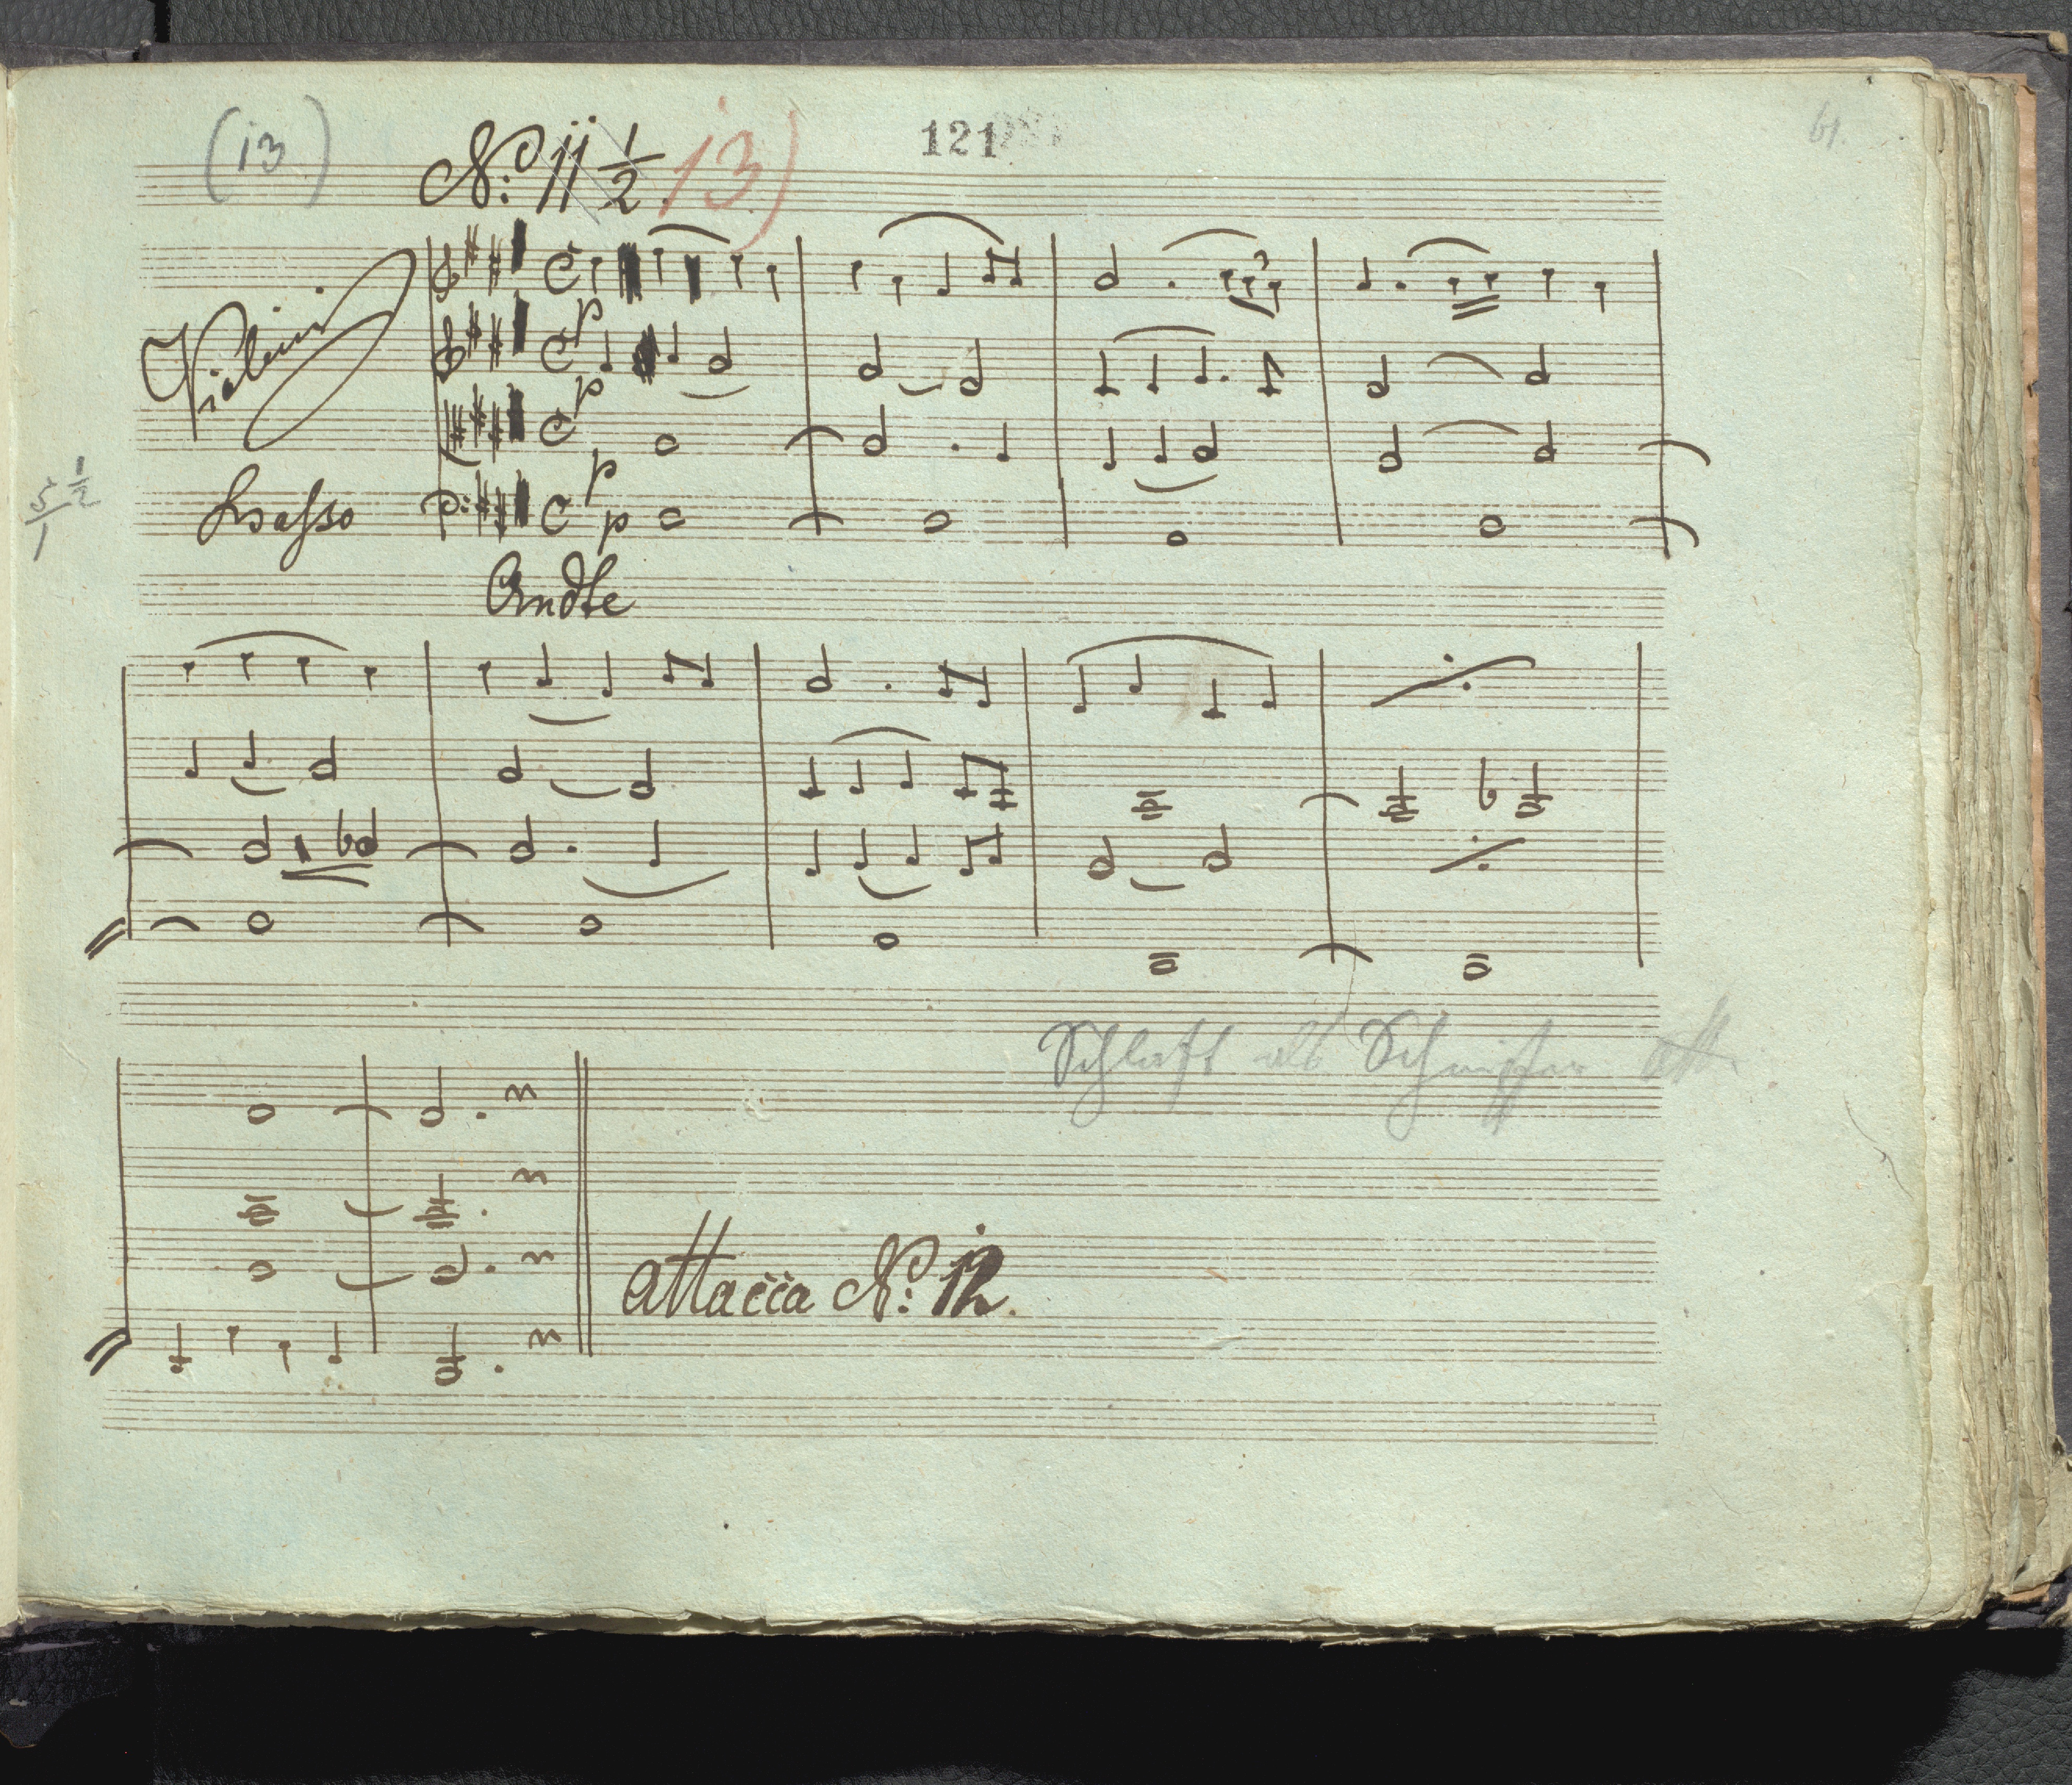 (13) N:o 11 1/2 13) 121 61.
Violini
p
p
p
5 1/2
1
Basso p
Andte
Schlaft als
attacca N:o 12.